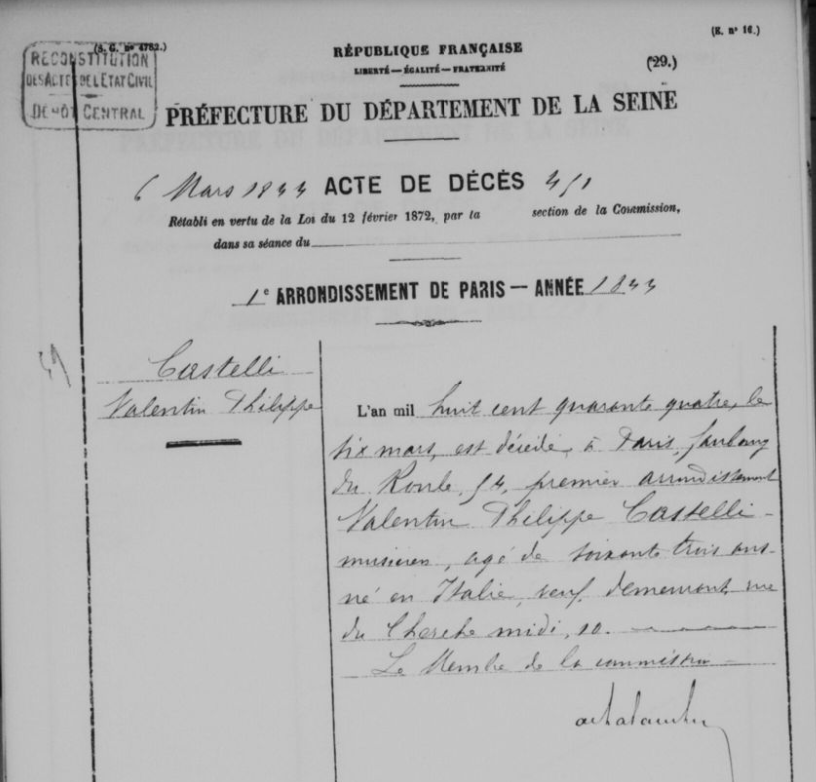 (S. G. nº 4782.)
(E. nº 16.)
RECONSTITUTION
DES ACTES DE L'ETAT CIVIL
DÉPÔT CENTRAL
RÉPUBLIQUE FRANÇAISE
LIBERTÉ — ÉGALITÉ — FRATERNITÉ
(29.)
PRÉFECTURE DU DÉPARTEMENT DE LA SEINE
6 Mars 1844 ACTE DE DÉCÈS
Rétabli en vertu de la Loi du 12 février 1872, par la section de la Commission,
dans sa séance du
1e ARRONDISSEMENT DE PARIS — ANNÉE 1844
Castelli
Valentin Philippe
L'an mil huit cent quarante quatre, le
six mars, est décédé, à Paris, faubourg
du Roule, 54, premier arrondissement
Valentin Philippe Castelli
musicien, agé de soixante trois ans
né en Italie, veuf, demeurant rue
du Cherche midi, 10.
Le Membre de la commission